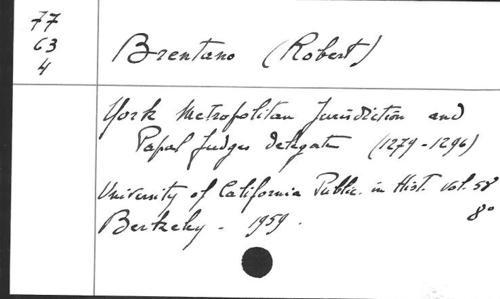 77
63
4
Brentano (Robert)
York Metropolitan Jurisdiction and
Papal Judges Delegate (1279-1296)
University of California Public. in Hist. vol. 58
8°
Berkeley - 1959.